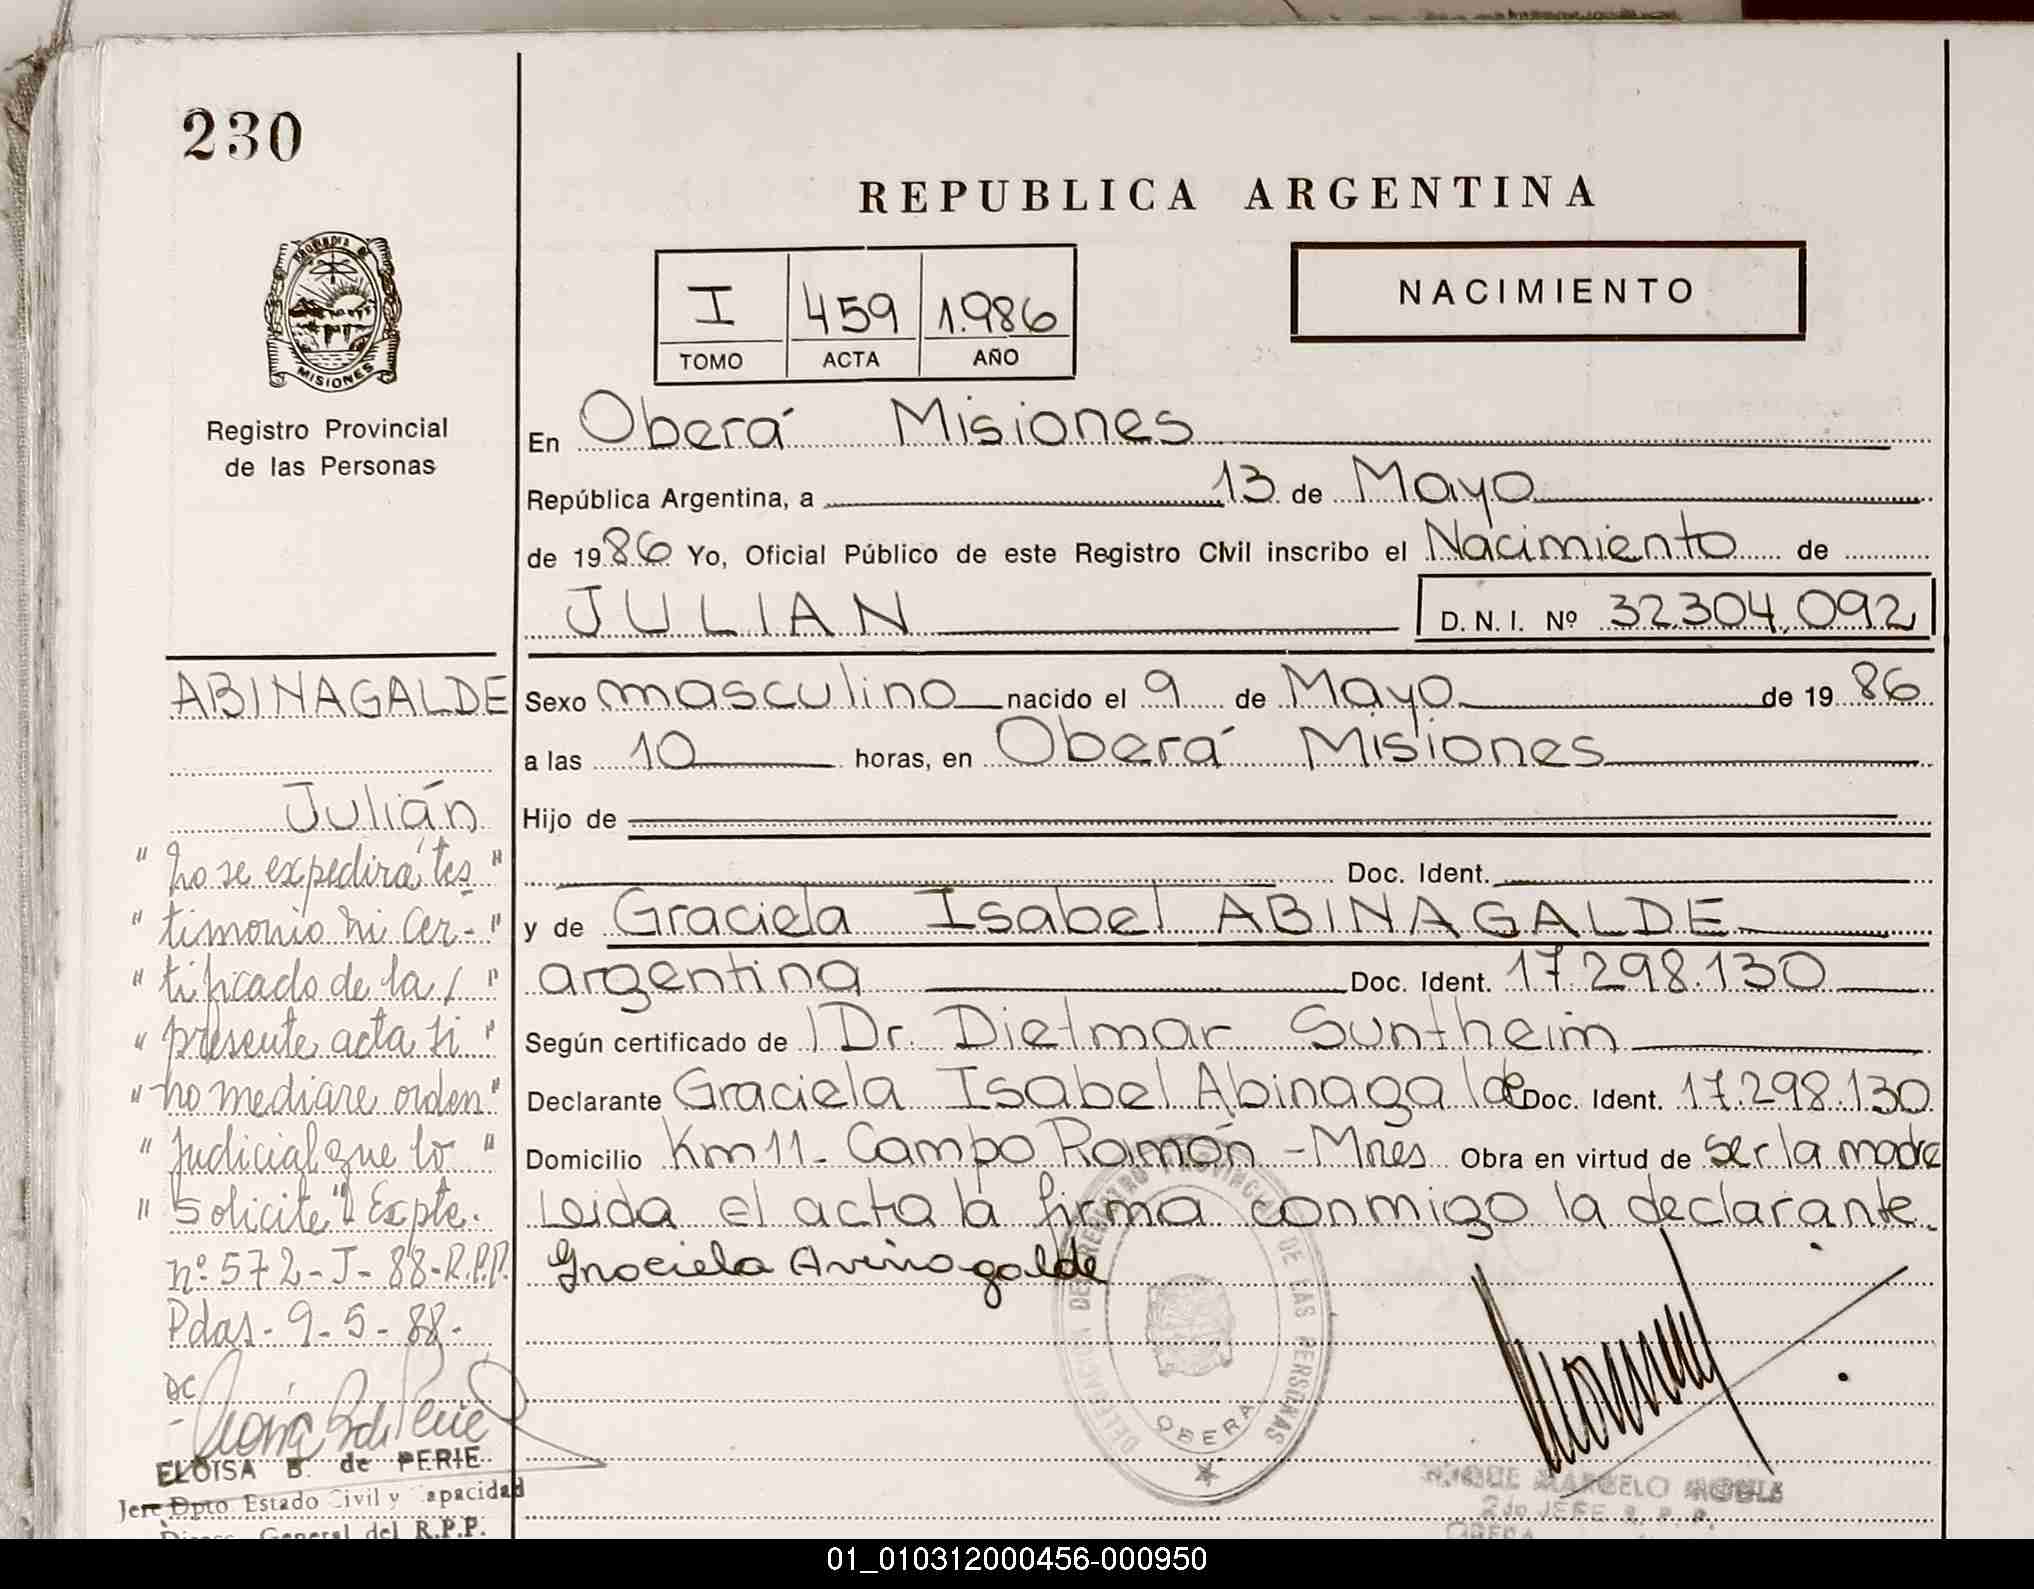 230
REPUBLICA ARGENTINA
I 459 1.986
TOMO ACTA AÑO
NACIMIENTO
MISIONES
Registro Provincial
de las Personas
En Oberá Misiones
República Argentina, a 13 de Mayo
de 1986 Yo, Oficial Público de este Registro Civil inscribo el Nacimiento de
JULIAN D. N. I. Nº 32.304.092
ABINAGALDE
Julián
" no se expedirá tes "
" timonio ni cer- "
" tificado de la / "
" presente acta si "
" no mediare orden "
" Judicial que lo "
" solicite " Expte.
nº 572-J-88-R.P.P.
Pdas- 9-5-88-
ELOISA B. de PERIE
Jefe Dpto. Estado Civil y Capacidad
General del R.P.P.
Sexo masculino nacido el 9 de Mayo de 1986
a las 10 horas, en Oberá Misiones
Hijo de
Doc. Ident.
y de Graciela Isabel ABINAGALDE
argentina Doc. Ident. 17.298.130
Según certificado de Dr. Dietmar Suntheim
Declarante Graciela Isabel Abinagalde Doc. Ident. 17.298.130
Domicilio Km 11- Campo Ramón - Mnes Obra en virtud de ser la madre
Leida el acta la firma conmigo la declarante.
Graciela Avinagalde
DELEGACION DEL REGISTRO PROVINCIAL DE LAS PERSONAS
OBERA
MARCELO
2do JEFE R. P. P.
OBERA
01_010312000456-000950